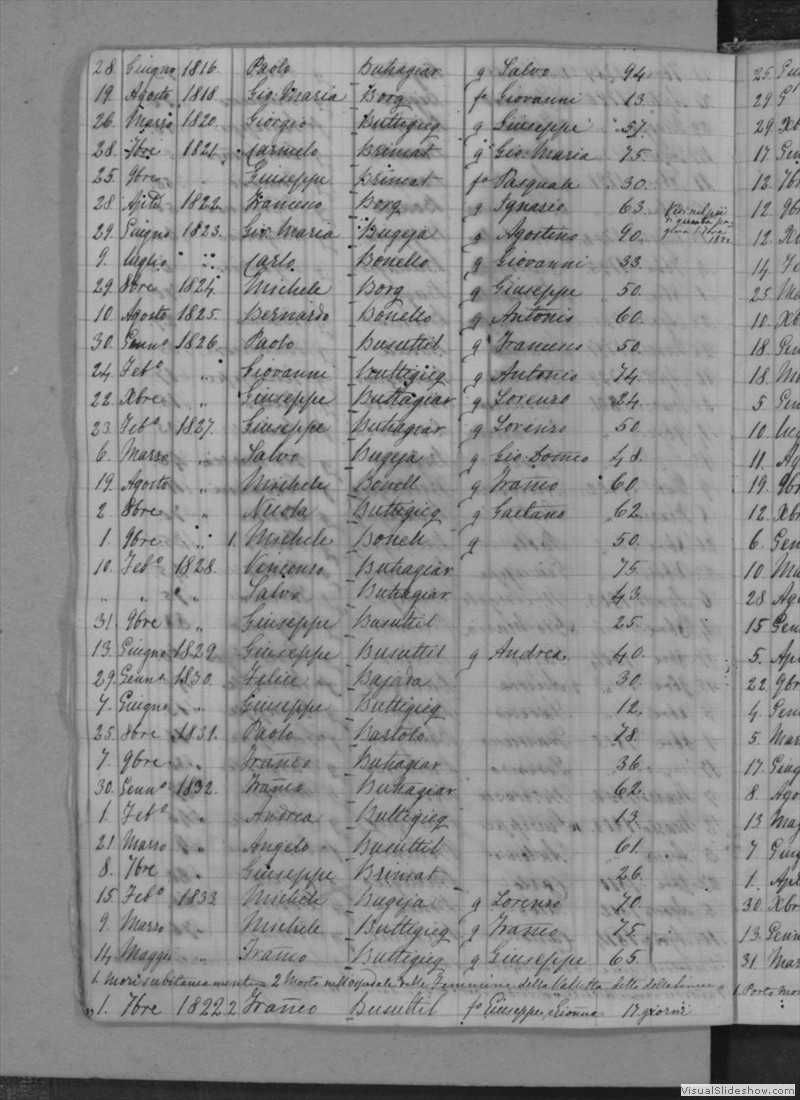 28 Giugno 1816 Paolo Buhagiar q Salvo 94
19. Agosto 1818. Gio Maria Borg fo Giovanni 13.
26. Marzo 1820. Giorgio Buttigieg q Giuseppe 51.
28. 7bre 1821 Carmelo Brincat q Gio Maria 75.
25. 9bre " Giuseppe Brincat fo Pasquale 30.
28 1822. Franceso Borg q Ignazio 63.
29. Giugno 1823. Gio Maria Bugeja q Agostino 90.
9. luglio " Carlo Bonello q Giovanni 33.
29. 8bre 1824. Michele Borg q Giuseppe 50.
10. Agosto 1825. Bernardo Bonello q Antonio 60.
30. Gennº 1826. Paolo Busuttil q Francesco 50.
24 Febº " Giovanni Buttigieg q Antonio 74.
22. Xbre " Giuseppe Buttagiar q Lorenzo 24.
23. Febº 1827. Giuseppe Buhagiar q Lorenzo 50.
6. Marzo " Salvo Bugeja q Gio Domco 48.
19. Agosto " Michele Bonell q Franco 60.
2 8bre " Nicola Buttigieg q Gaetano 62.
1. 9bre " 1. Michele Boneli q 50.
10. Febº 1828. Vincenzo Buhagiar 75.
" " " Salvo Buhagiar 43.
31. 9bre " Giuseppe Busuttil 25.
13. Giugno 1829. Giuseppe Busuttil q Andrea 40.
29. Gennº 1830. Felice Bajada 30.
7. Giugno " Giuseppe Buttigieg 12.
25. 8bre 1831. Paolo Bartolo 78.
7. 9bre " Franco Buhagiar 36.
30. Gennº 1832. Franco Buhagiar 62.
1. Febº " Andrea Buttigieg 13.
21. Marzo " Angelo Busuttil 61.
8. 7bre " Giuseppe Brincat 26.
15. Febº 1833. Michele Bugeja q Lorenzo 70.
9. Marzo " Michele Buttigieg q Franco 75.
14. Maggio " Franco Buttigieg q Giuseppe 65
1. Mori subitaneamente 2 Morto nell'ospedale delle Femmine della Valletta
1. 7bre 1822. 2 Franco Busuttil fo Giuseppe, 17 giorni
25.
29. G
29. Xb
17. Gen
12. 7br
12. 9br
12. Xb
14.
25.
10. Xb
18. Gen
18. Ma
5 Gen
10.
11. Ag
19. 9br
12. Xbr
6. Gen
10. Ma
28 Ago
15 Gen
5. Apr
22. 9br
4. Gen
5. Mar
17. Giug
8. Ago
13 Mag
7 Giug
1. Apr
30. Xbr
13. Genn
31. Mar
1. Porto Mor
VisualSlideshow.com